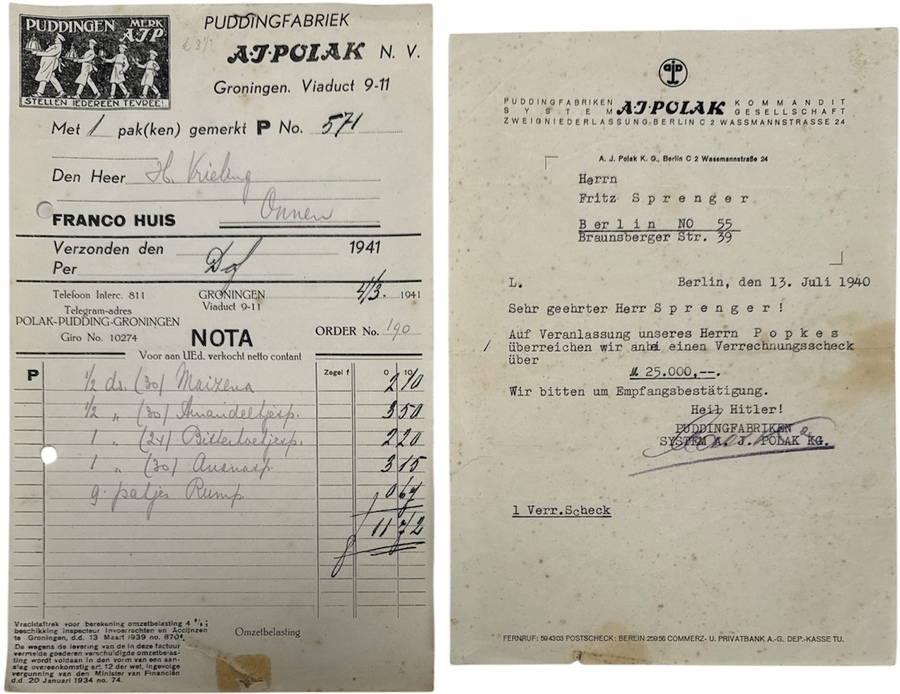 PUDDINGEN MERK
AJP
STELLEN IEDEREEN TEVREE!
PUDDINGFABRIEK
A·J·POLAK N. V.
Groningen. Viaduct 9-11
Met 1 pak(ken) gemerkt P No. 571
Den Heer H. Vrieling
Onnen
FRANCO HUIS
Verzonden den 1941
Per
Telefoon Interc. 811
Telegram-adres
POLAK-PUDDING-GRONINGEN
Giro No. 10274
GRONINGEN
Viaduct 9-11
4/3. 1941
NOTA
ORDER No. 190
Voor aan UEd. verkocht netto contant
P
Zegel f
½ ds. (30) Maizena 2 70
½ „ (30) Amandeltjesp. 3 50
1 „ (24) Bitterkoetjesp. 2 20
1 „ (30) Ananasp. 3 15
g. patjes Rump. 0 67
11 72
Vrachtaftrek voor berekening omzetbelasting 4 %;
beschikking inspecteur Invoerrechten en Accijnzen
te Groningen, d.d. 13 Maart 1939 no. 870f.
De wegens de levering van de in deze factuur
vermelde goederen verschuldigde omzetbelas-
ting wordt voldaan in den vorm van een aan-
slag overeenkomstig art. 12 der wet, ingevolge
vergunning van den Minister van Financiën
d.d. 20 Januari 1934 no. 74.
Omzetbelasting
AJP
PUDDINGFABRIKEN
SYSTEM
A·J·POLAK
KOMMANDIT
GESELLSCHAFT
ZWEIGNIEDERLASSUNG: BERLIN C 2 WASSMANNSTRASSE 24
A. J. Polak K. G., Berlin C 2 Wassmannstraße 24
Herrn
Fritz Sprenger
Berlin NO 55
Braunsberger Str. 39
L. Berlin, den 13. Juli 1940
Sehr geehrter Herr Sprenger!
Auf Veranlassung unseres Herrn Popkes
/ überreichen wir anbei einen Verrechnungsscheck
über
ℳ 25.000,--.
Wir bitten um Empfangsbestätigung.
Heil Hitler!
PUDDINGFABRIKEN
SYSTEM A. J. POLAK KG.
1 Verr.Scheck
FERNRUF: 594303 POSTSCHECK: BERLIN 25956 COMMERZ- U. PRIVATBANK A.-G. DEP.-KASSE TU.